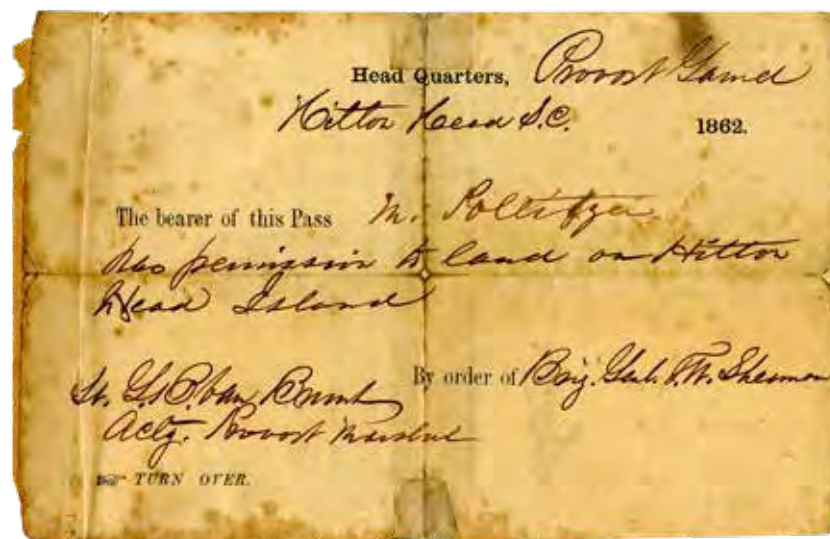 Head Quarters, Provost Guard
Hilton Head S.C. 1862.
The bearer of this Pass M. Pollitzer
has permission to land on Hilton
Head Island
By order of Brig. Genl. T. W. Sherman
Lt. G. S. B. van Brunt
Actg. Provost Marshal
TURN OVER.